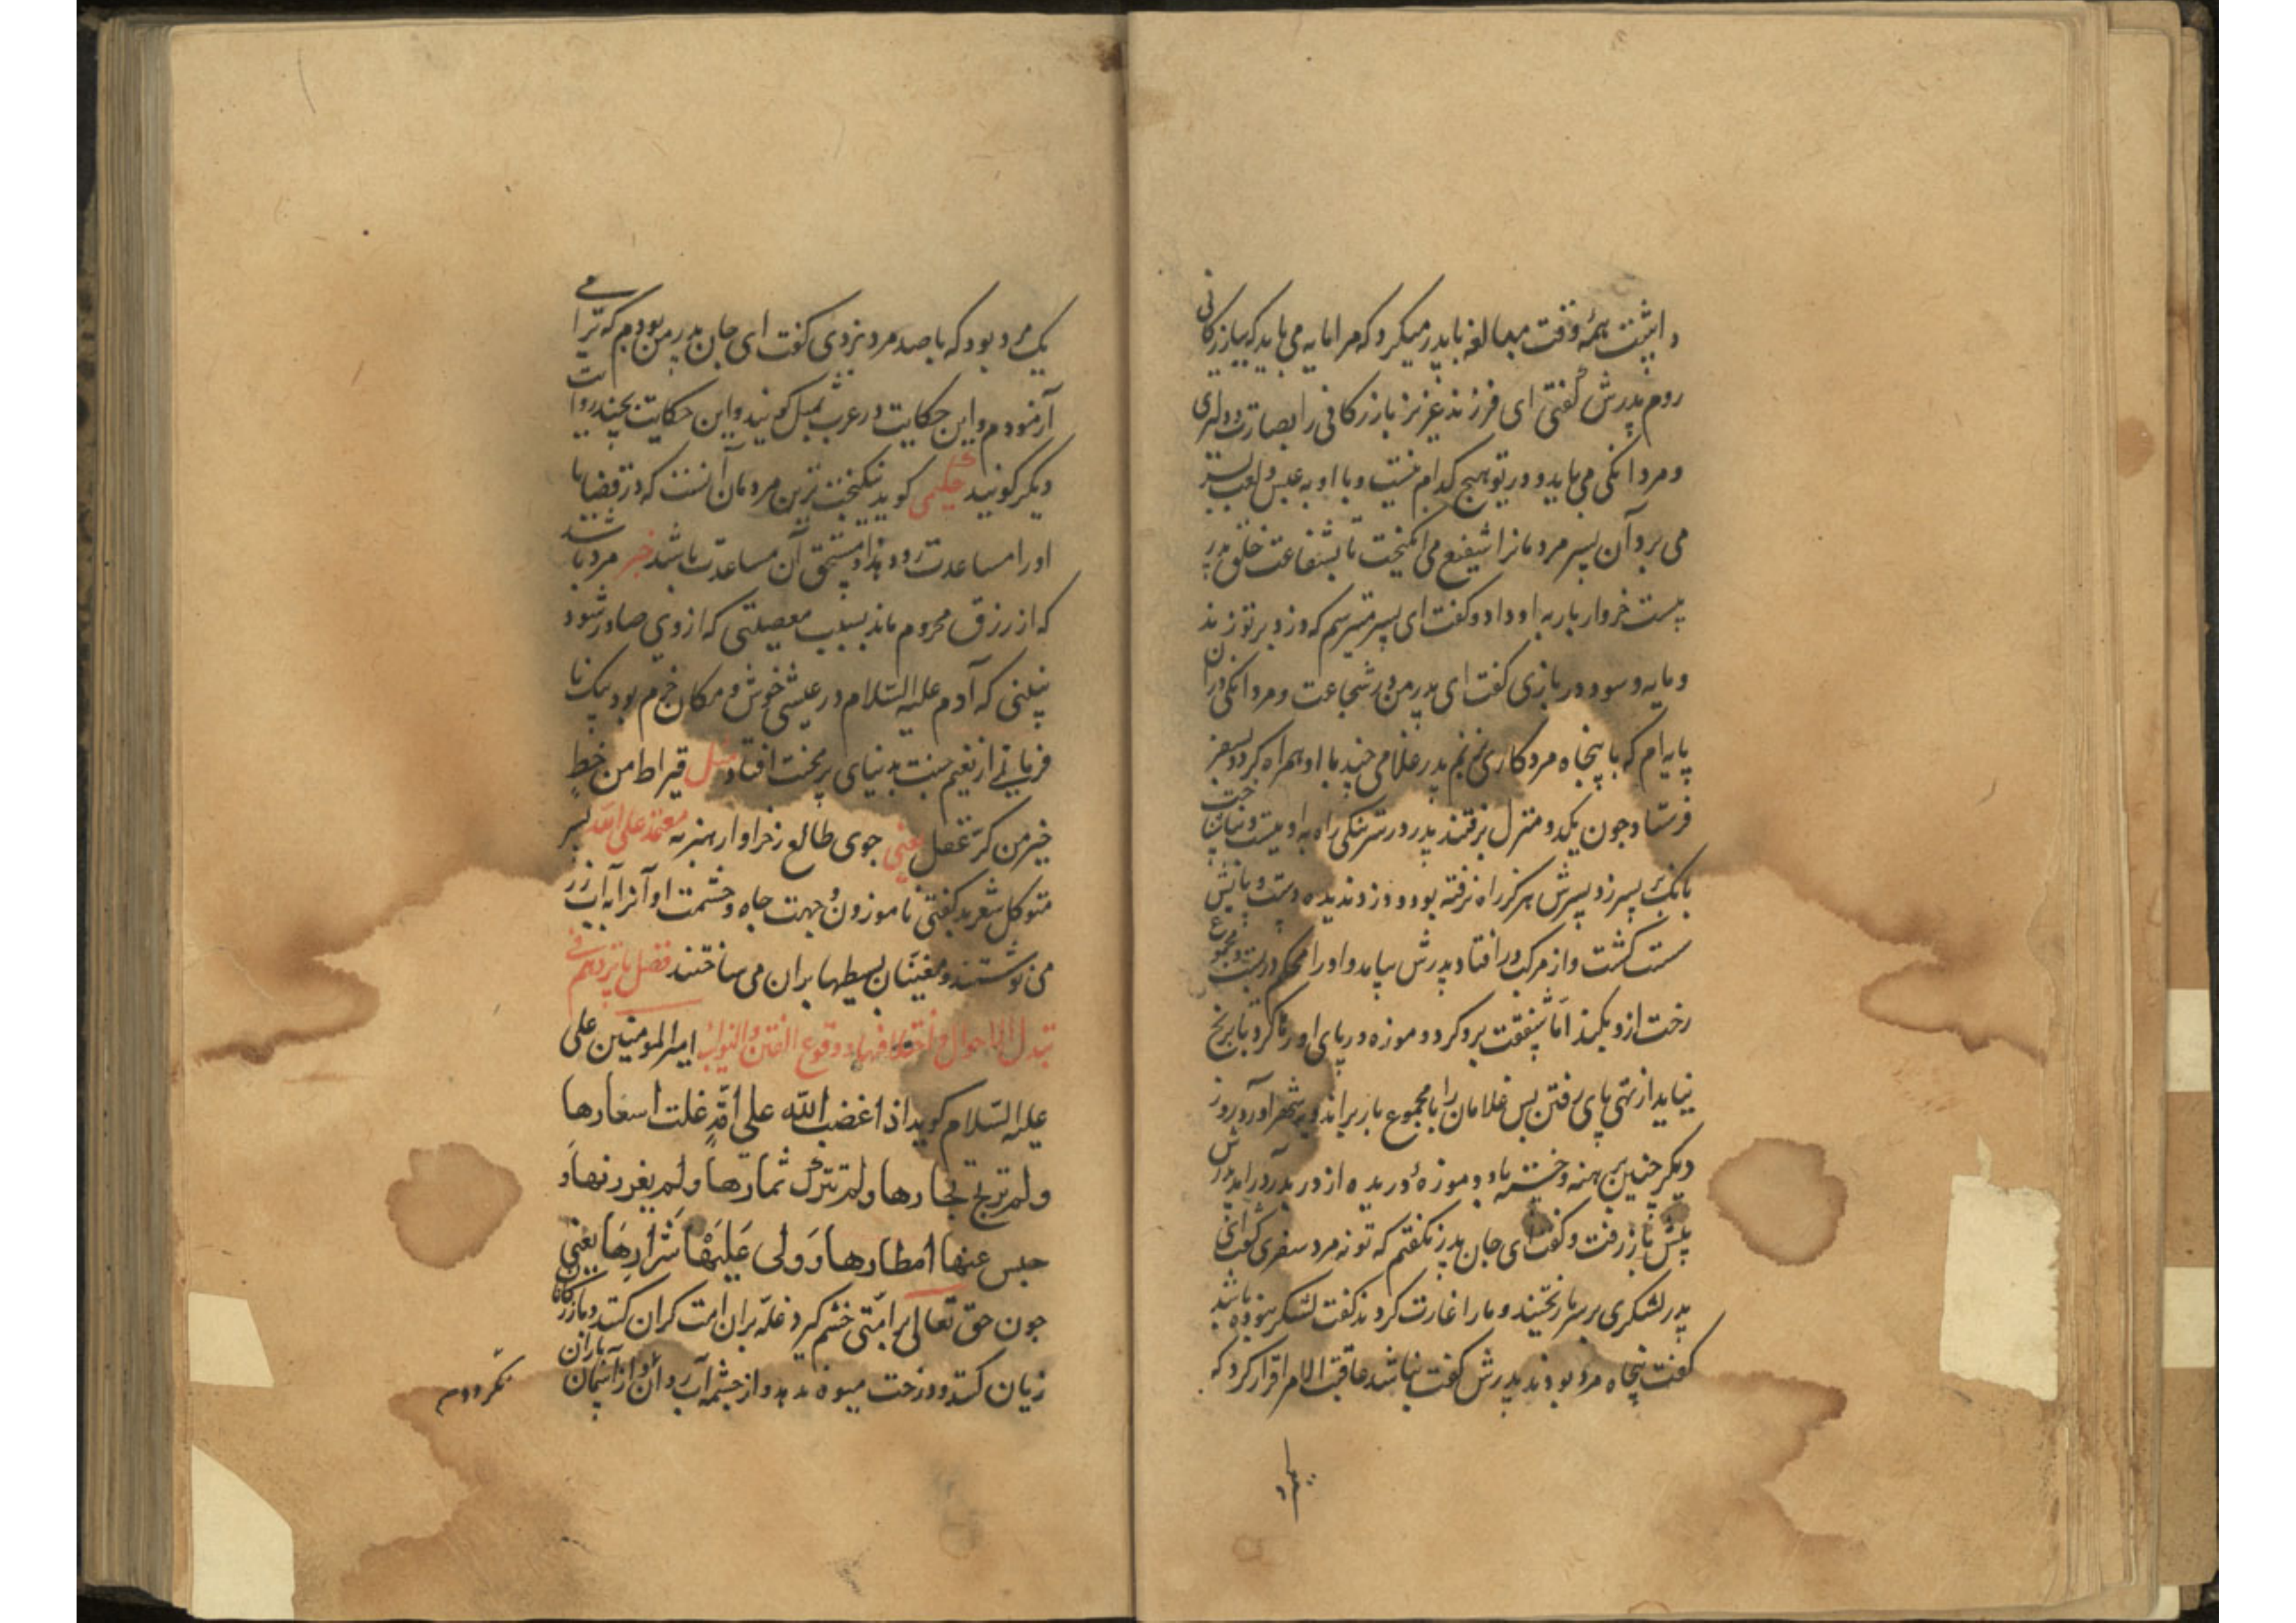 داشت همه وقت مبالغه با پدر میکرد که مرا مایه می باید که ببازرکانی
روم پدرش گفتی ای فرزند عزیز بازرکانی را بصارت و دلیری
و مردانکی می باید و در تو هیچ کدام نیست و با او به عبس و لعب بسر
می برد آن پسر مردمانرا شفیع می انکیخت تا بشفاعت خلق پدر
بیست خروار بار به او داد و کفت ای پسر میترسم که دزد بر تو زند
و مایه و سود در بازی کفت ای پدر من در شجاعت و مردانکی دران
پایه ام که با پنجاه مرد کاری بزنم پدر غلامی چند با او همراه کرد و بسفر
فرستاد چون یکدو منزل برفتند پدر در سر تنکی راه به او
بانک بر پسر زد پسرش هرکز راه نرفته بود و دزد ندیده دست و پایش
سست کشت و از مرکب در افتاد پدرش بیامد و او را محکم دربست و مجموع
رخت ازو بکند اما شفقت برو کرد و موزه در پای او رها کرد تا برنج
نیاید از تهی پای رفتن پس غلامان را با مجموع بار براند و بشهر آورد روز
دیکر چنین برهنه و خسته و موزهٔ دریده از در پدر درآمد پدرش
پیش باز رفت و کفت ای جان پدر نکفتم که تو نه مرد سفری کفت ای
پدر لشکری بر سر ما ریختند و ما را غارت کردند کفت لشکر نبوده باشد
کفت پنجاه مرد بودند پدرش کفت نباشد عاقبة الامر اقرار کرد که
یک مرد بود که با صد مرد بزدی کفت ای جان پدر من بودم که ترا می
آزمودم و این حکایت در عرب بمثل کویند و این حکایت بچند روایت
دیکر کویند حکیمی کوید نیکبخت ترین مردمان آنست که در قضایا
او را مساعدت رود و او مستحق آن مساعدت باشد خبر مرد باشد
که از رزق محروم ماند بسبب معصیتی که از وی صادر شود
نبینی که آدم علیه السلام در عیشی خوش و مکان خرم بود بیک نا
فرمانی از نعیم جنت بدنیای پر محنت افتاد مثل قیراط من خط
خیر من کر عقل یعنی جوی طالع ز خرواری هنر به معتمد علی الله پسر
متوکل شعر بد کفتی ناموزون و جهت جاه و حشمت او آنرا به آب زر
می نوشتند و مغنیان بسیطها بران می ساختند فصل پانزدهم فی
تبدل الاحوال و اختلافها و وقوع الفتن والنوایب امیر المومنین علی
علیه السلام کوید اذا غضب الله علی امة غلت اسعارها
ولم تربح تجارها ولم تترک ثمارها ولم یغزر انهارها و
حبس عنها امطارها و ولی علیها شرارها یعنی
چون حق تعالی بر امتی خشم کیرد غله بران امت کران کند و بازرکانان
زیان کنند و درخت میوه ندهد و از چشمه آب روان و از آسمان باران